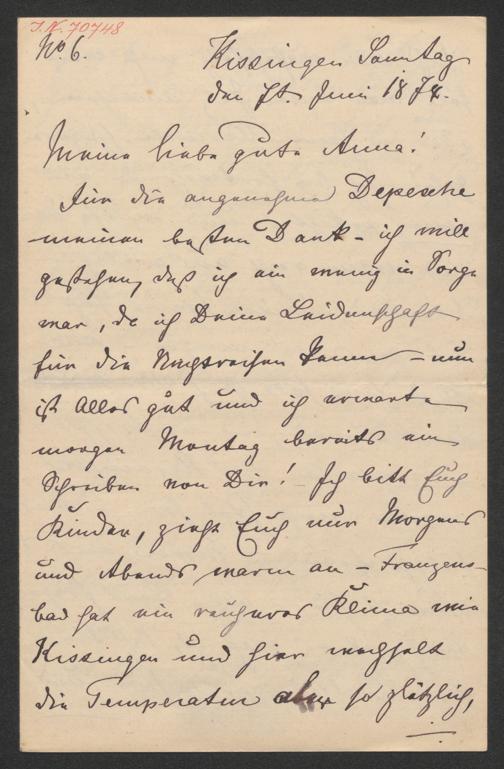 I.N. 70748
No. 6.
Kissingen Sonntag
den 7t. Juni 1874.
Meine liebe gute Anna!
Für die angenehme Depesche
meinen besten Dank – ich will
gestehen, daß ich ein wenig in Sorge
war, da ich Deine Leidenschaft
für die Nachtreisen kenne – nun
ist Alles gut und ich erwarte
morgen Montag bereits ein
Schreiben von Dir! – Ich bitt Euch
Kinder, zieht Euch nur Morgens
und Abends warm an – Franzens-
bad hat ein rauheres Klima wie
Kissingen und hier wechselt
die Temperatur aber so plötzlich,